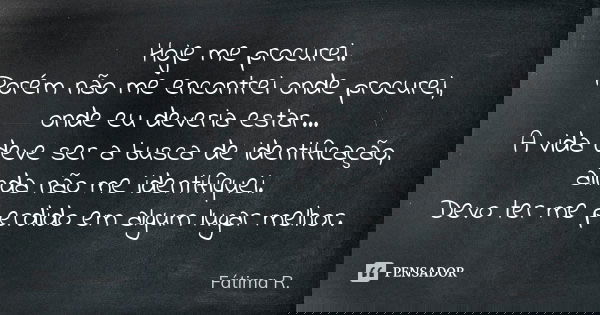 Hoje me procurei.
Porém não me encontrei onde procurei,
onde eu deveria estar...
A vida deve ser a busca de identificação,
ainda não me identifiquei.
Devo ter me perdido em algum lugar melhor.
Fátima R.
PENSADOR